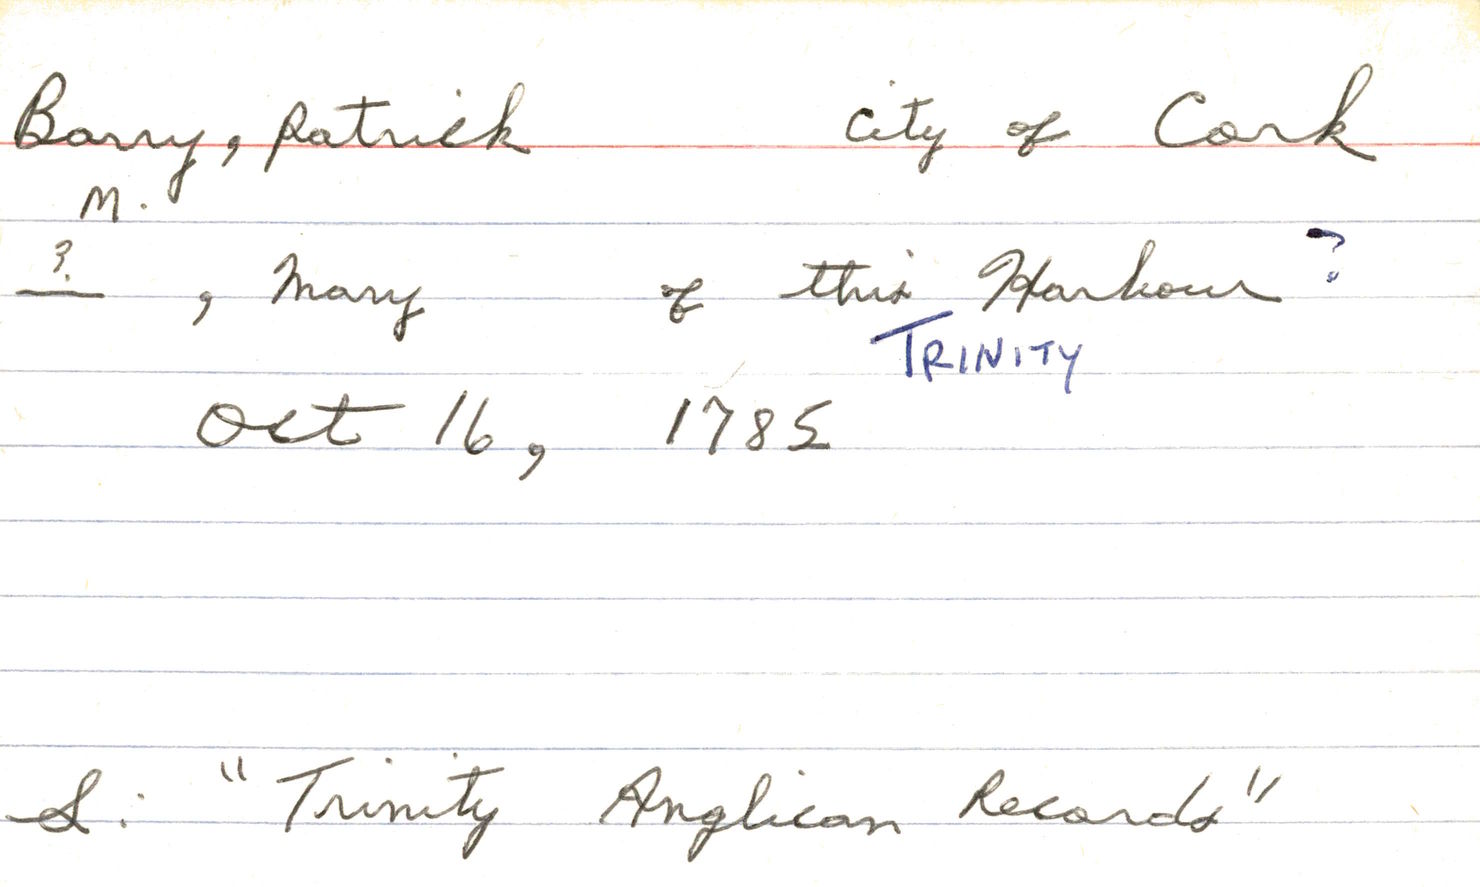 Barry, Patrick city of Cork
M.
?, Mary of this Harbour?
TRINITY
Oct 16, 1785
S: "Trinity Anglican Records"